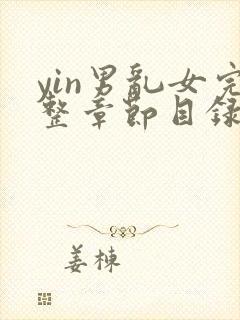 yin男乱女完
整章节目录
姜栋